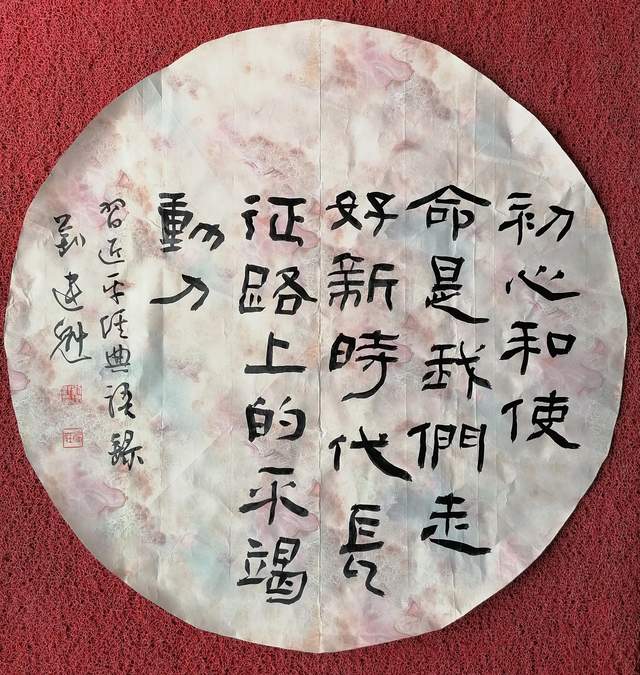 初心和使
命是我們走
好新時代長
征路上的不竭
動力
習近平經典語錄
劉建